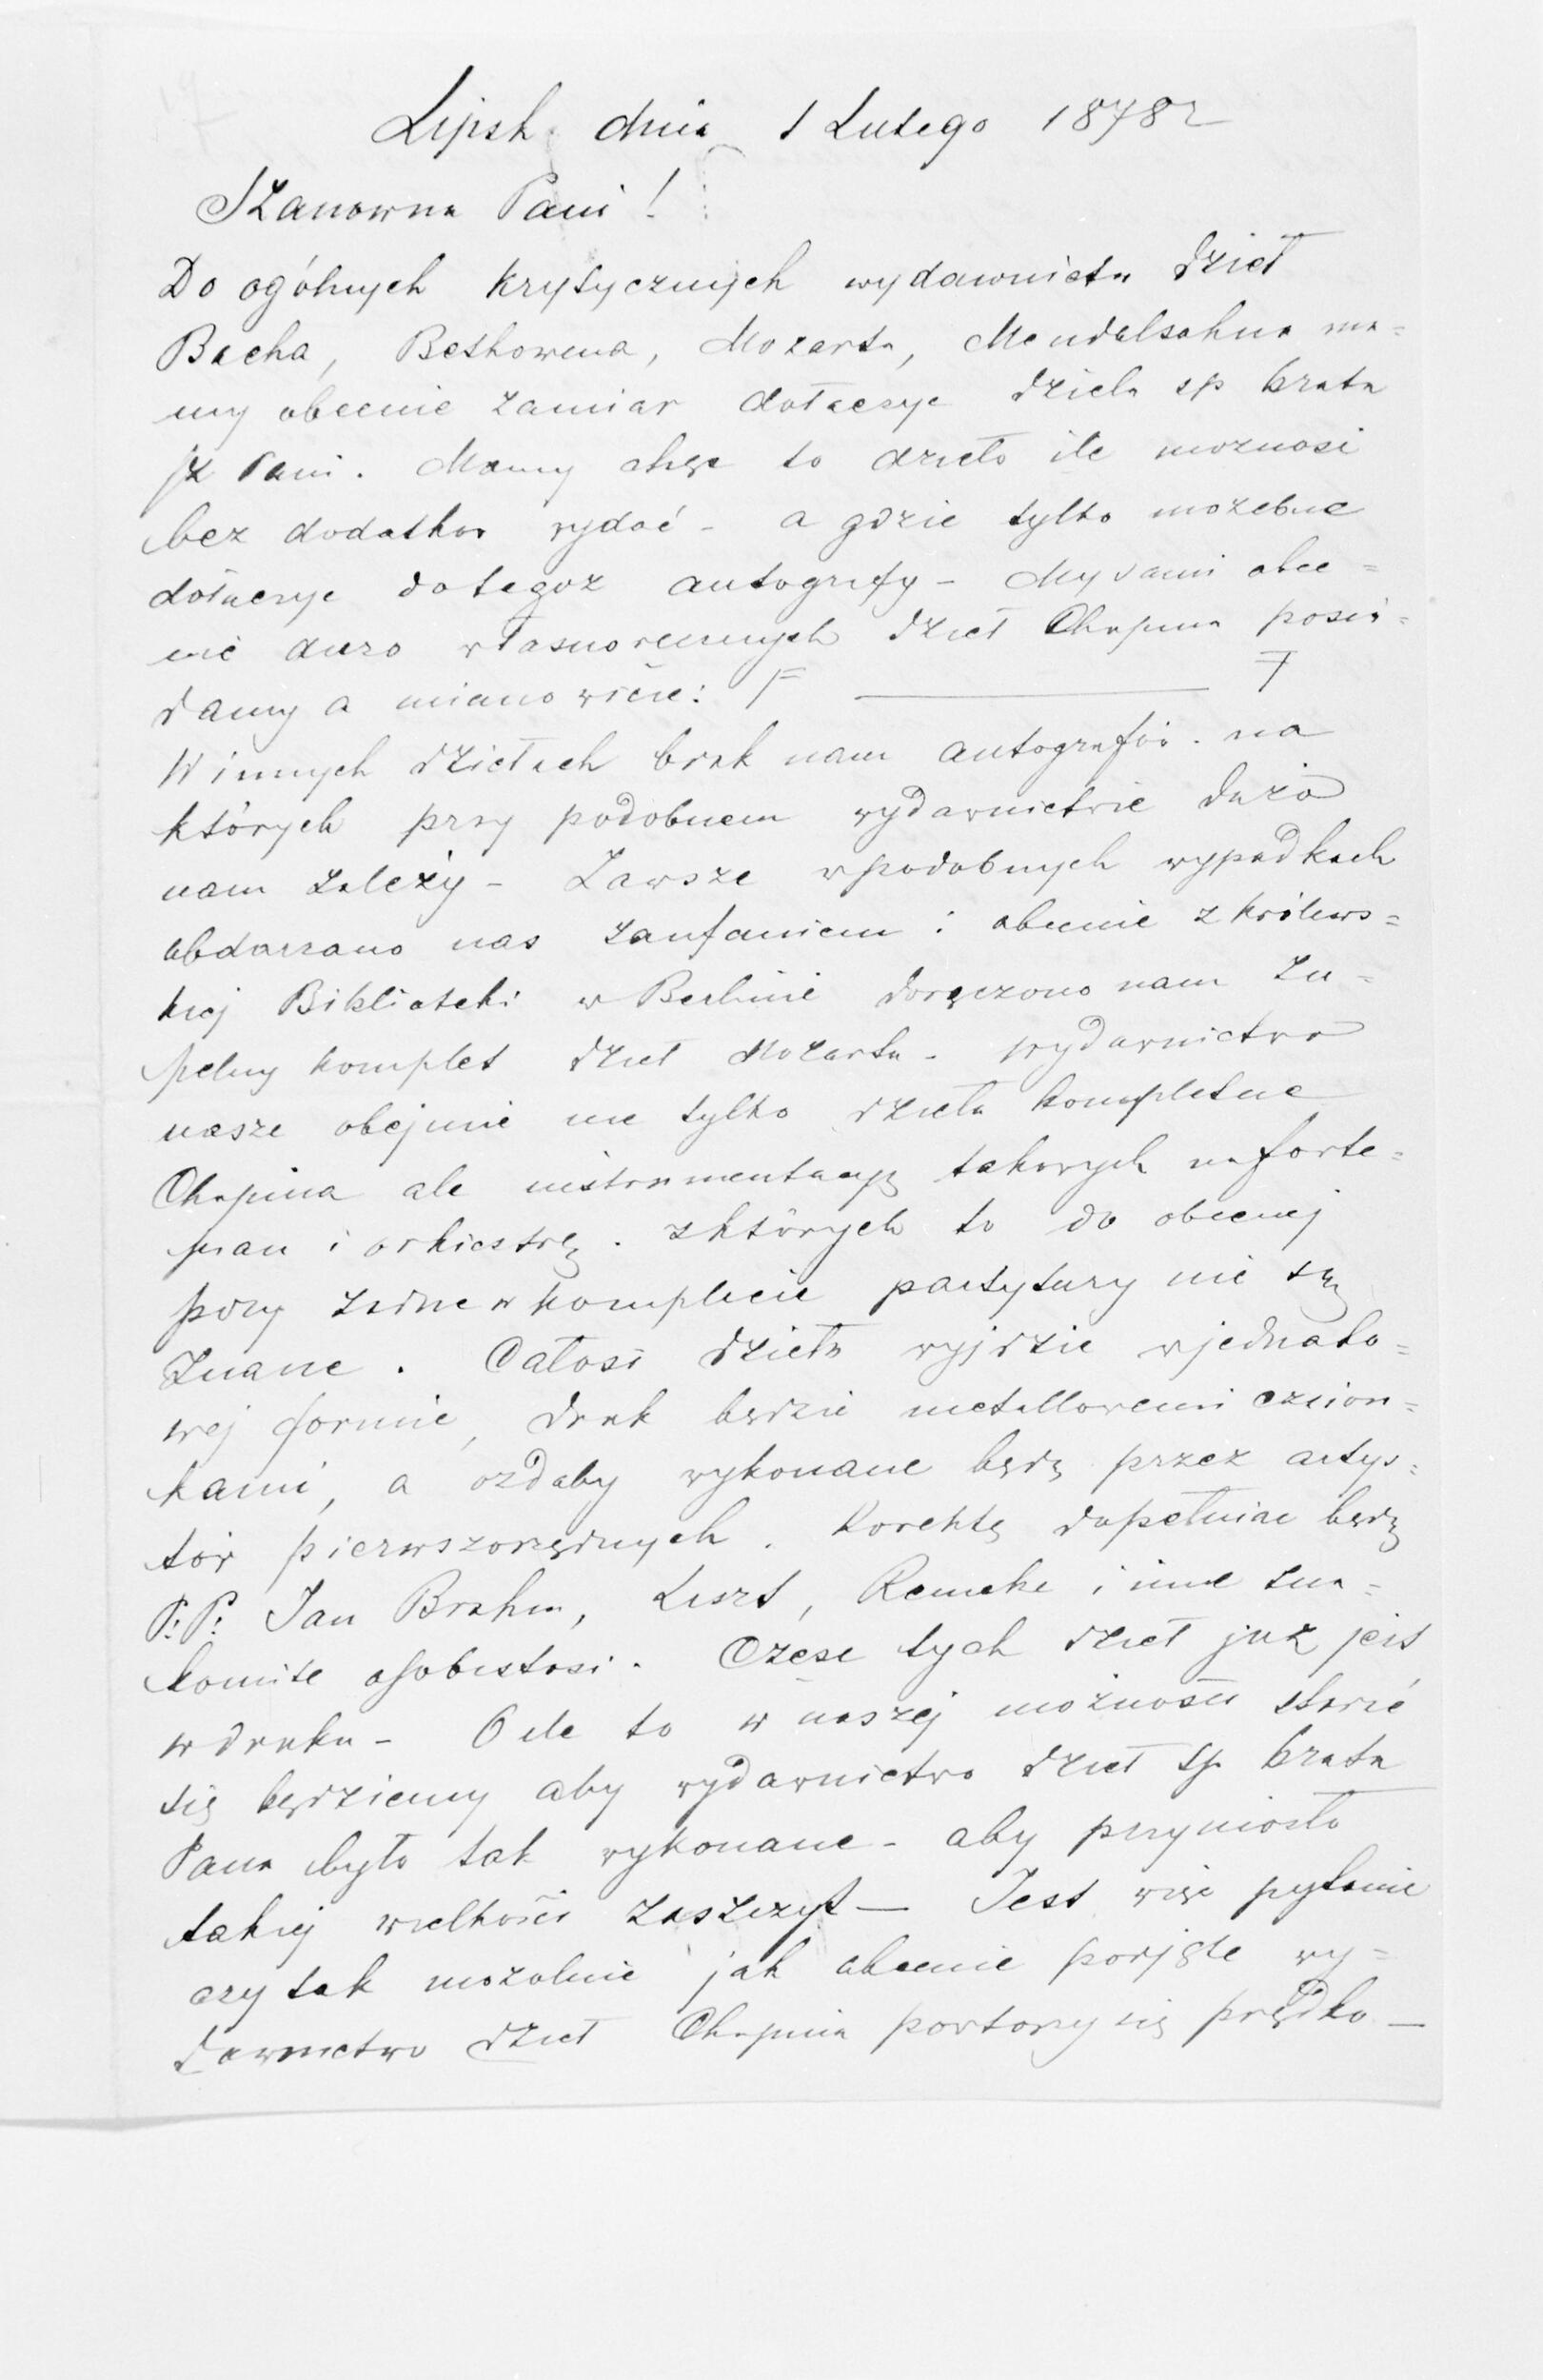 Lipsk dnia 1 Lutego 1878 r
Szanowna Pani!
Do ogólnych krytycznych wydawnictw dzieł
Bacha, Bethowena, Mozarta, Mendelsohna ma=
my obecnie zamiar dołaczyc dzieła sp brata
Sz Pani. Mamy chęc to dzieło ile moznosi
bez dodatkow wydać - a gdzie tylko mozebne
dołaczyc do tegoz autografy - My sami obec=
nie duzo własnorecznych dzieł Chopina posia=
damy a mianowicie: F ——— F
W innych dziełach brak nam autografów. na
których przy podobnem wydawnictwie dużo
nam zależy - Zawsze w podobnych wypadkach
obdarzano nas zaufaniem i obecnie z królews=
kiej Biblioteki w Berlinie doręczono nam zu=
pełny komplet dzieł Mozarta - wydawnictwo
nasze obejmie nie tylko dzieła kompletne
Chopina ale instrumentacyę takowych na forte=
pian i orkiestrę. z których to do obecnej
pory zadne w komplecie partytury nie są
znane. Całosi dzieła wyjdzie w jednako=
wej formie, druk będzie metallowemi czcion=
kami, a ozdoby wykonane będą przez artys=
tów pierwszorzędnych. Korektę dopełniac będą
P.P. Jan Brahm, Liszt, Reineke i inne zna=
komite osobistosi. Częsc tych dzieł juz jest
w druku - O ile to w naszej możności starać
się będziemy aby wydawnictwo dzieł sp brata
Pana było tak wykonane - aby przyniosło
takiej wielkości zaszczyt — Jest więc pytanie
czy tak mozolnie jak obecnie podjęte wy=
dawnictwo dzieł Chopina powtorzy się prędko —